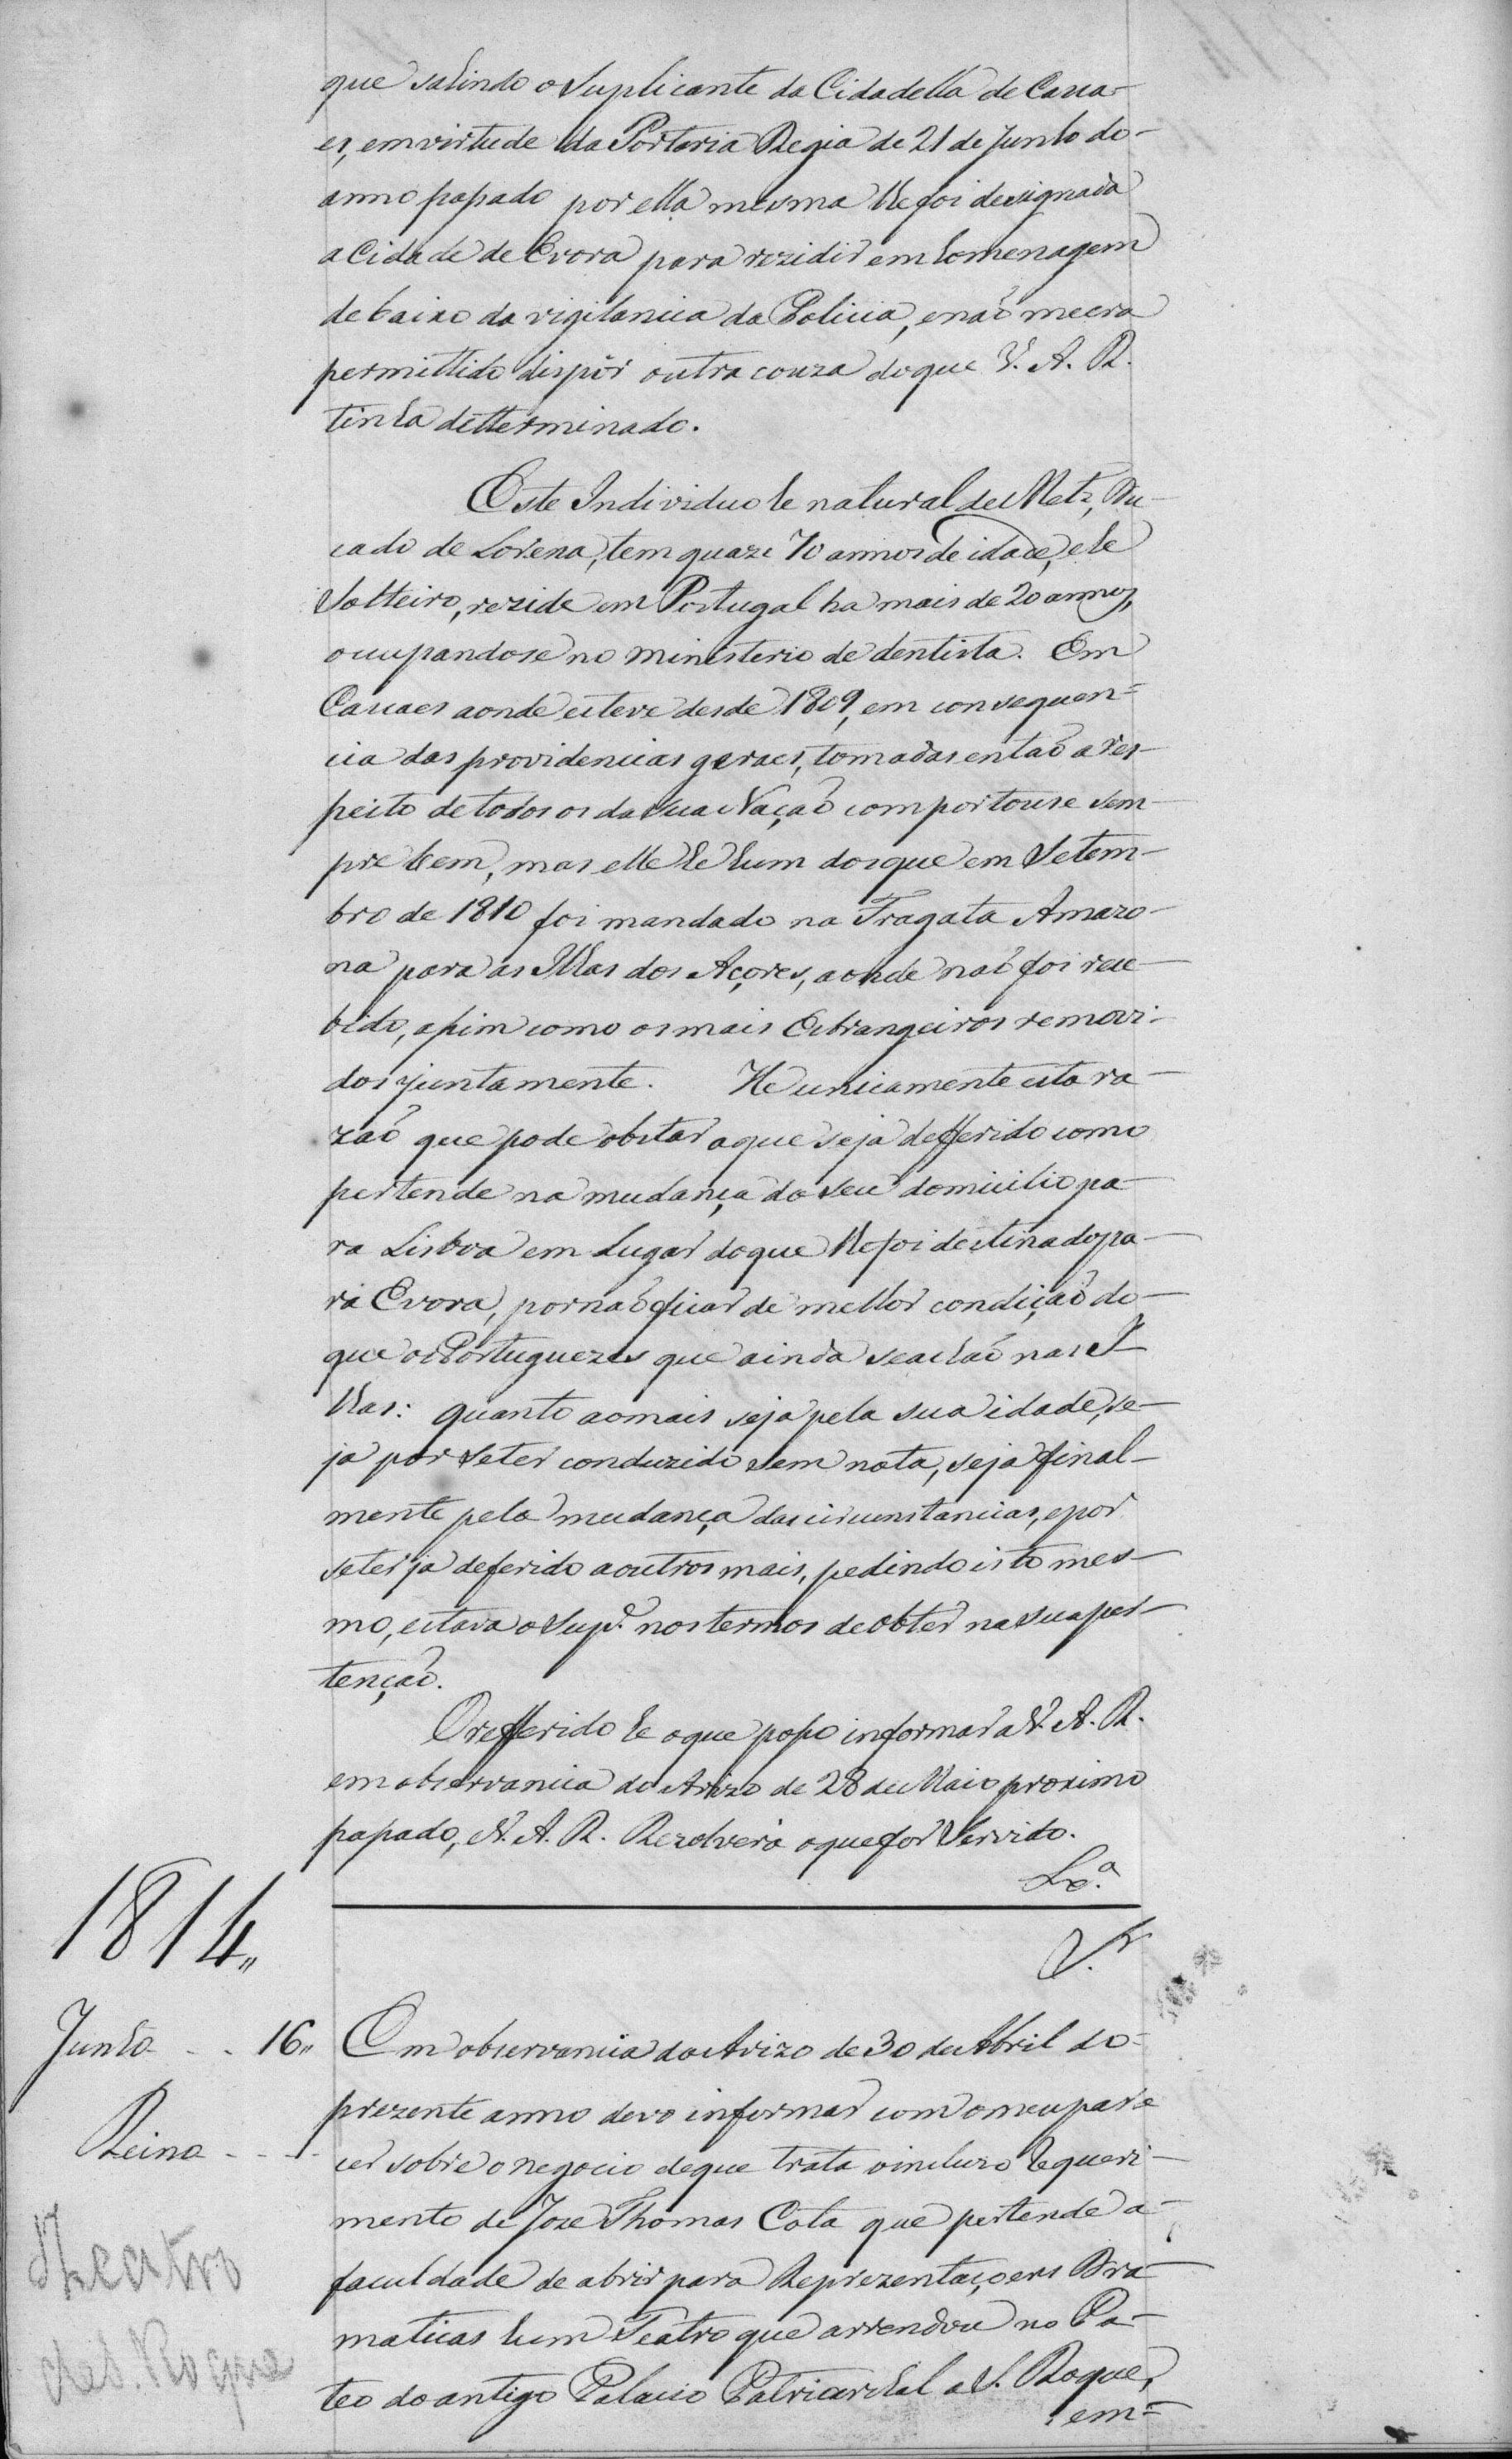 que sahindo o Suplicante da Cidadella de Casca-
es, em virtude da Portaria Regia de 21 de Junho do-
anno passado por ella mesma lhe foi designada
a Cidade de Evora para rezidir em homenagem
debaixo da vigilancia da Policia, e naõ me era
permittido dispôr outra couza do que V. A. R.
tinha detterminado.
Este Individuo he natural de Metz, Du-
cado de Lorena, tem quaze 70 annos de idade, e he
Solteiro, rezide em Portugal ha mais de 20 annos,
occupandose no ministerio de dentista. Em
Cascaes aonde esteve desde 1809, em consequen=
cia das providencias geraes, tomadas entaõ a res-
peito de todos os da sua Naçaõ comportouse sem-
pre bem, mas elle he hum dos que em Setem-
bro de 1810 foi mandado na Fragata Amazo-
na para as Ilhas dos Açores, aonde naõ foi rece-
bido, assim como os mais Estrangeiros removi-
dos juntamente. He unicamente esta ra-
zaõ que pode obstar a que seja defferido como
pertende na mudança do seu domicilio pa-
ra Lisboa em lugar do que lhe foi destinado pa-
ra Evora, por naõ ficar de melhor condiçaõ do-
que os Portuguezes que ainda se achaõ nas I-
lhas: quanto ao mais seja pela sua idade, se-
ja por se ter conduzido sem nota, seja final-
mente pela mudança das circunstancias, e por
se ter ja deferido a outros mais, pedindo isto mes-
mo, estava o Sup.e nos termos de obter na sua per-
tençaõ.
O refferido he o que posso informar a V. A. R.
em observancia do Avizo de 28 de Maio proximo
passado, V. A. R. Rezolverá o que for Servido.
Lx.a
1814,,
S.r
Junho - - 16,,
Em observancia do Avizo de 30 de Abril do=
prezente anno devo informar com o meu pare
Reino - - -
cer sobre o negocio de que trata o incluzo Requeri-
mento de Joze Thomas Cota que pertende a-
Theatro
faculdade de abrir para Reprezentaçoens Dra-
maticas hum Teatro que arrendou no Pa-
de S. Roque
teo do antigo Palacio Patriarchal a S. Roque,
em=